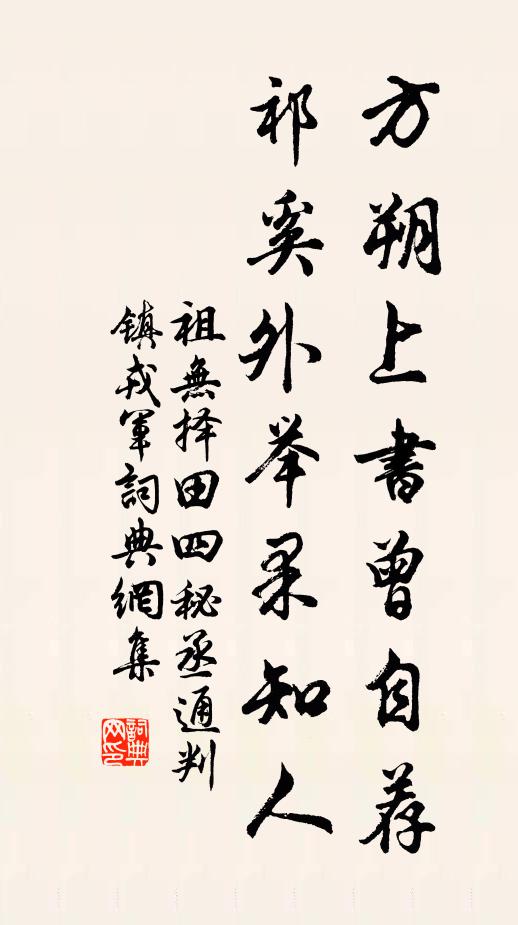 方朔上書曾自荐
祁奚外举果知人
祖無择田四秘丞通判
鎮戎軍詞典網集
詞典網印